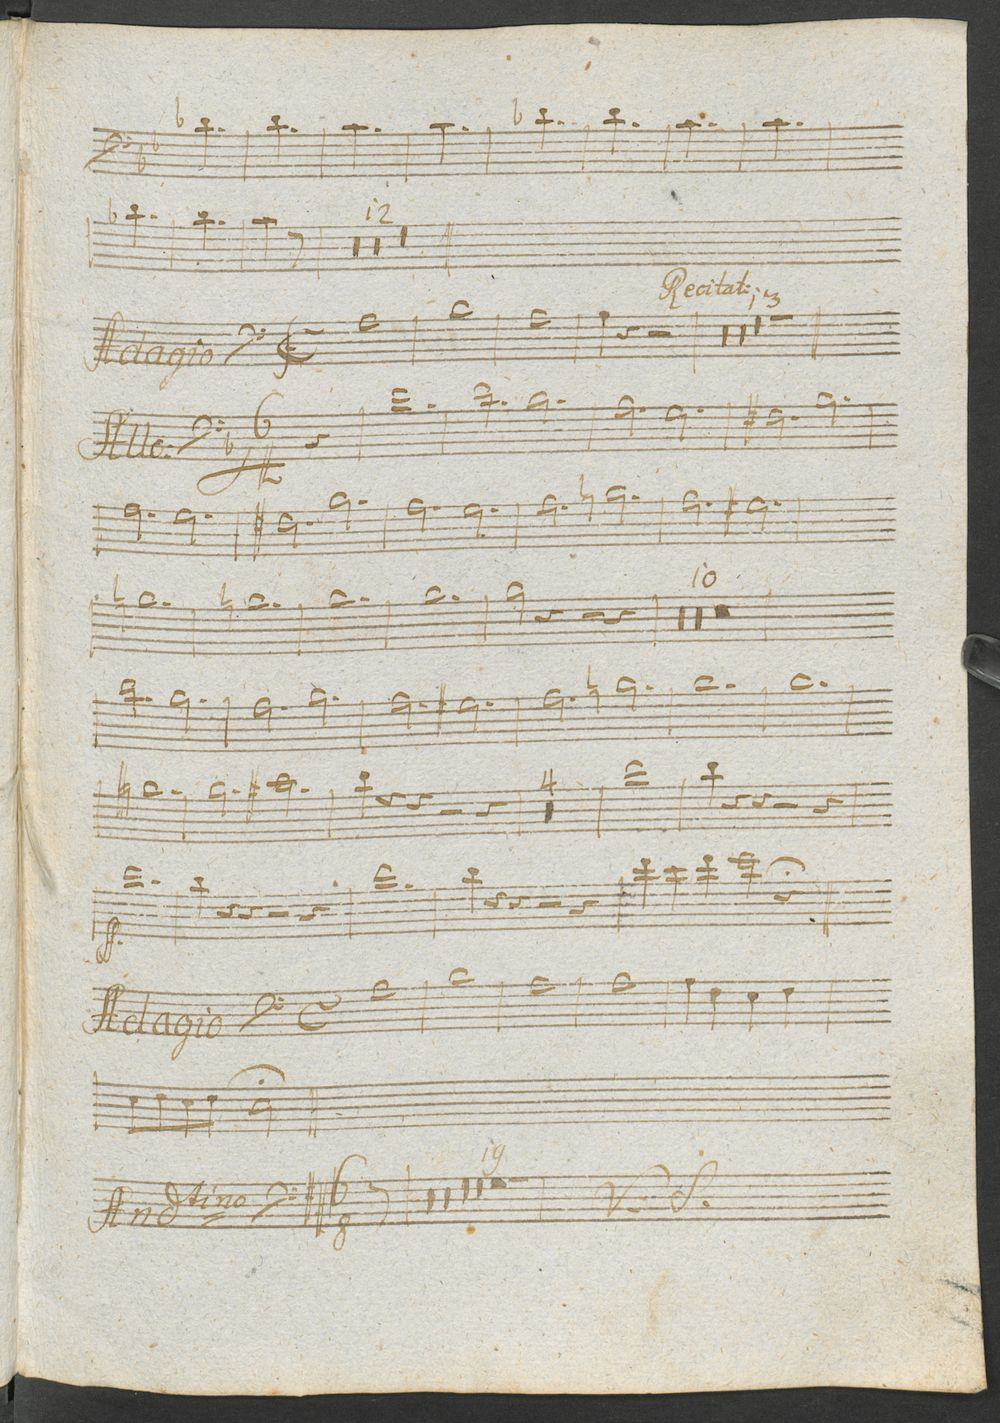 12
Recitat: 13
Adagio
Allo: 6
10
4
p.
Adagio
19
Andtino 6 8 V. S.